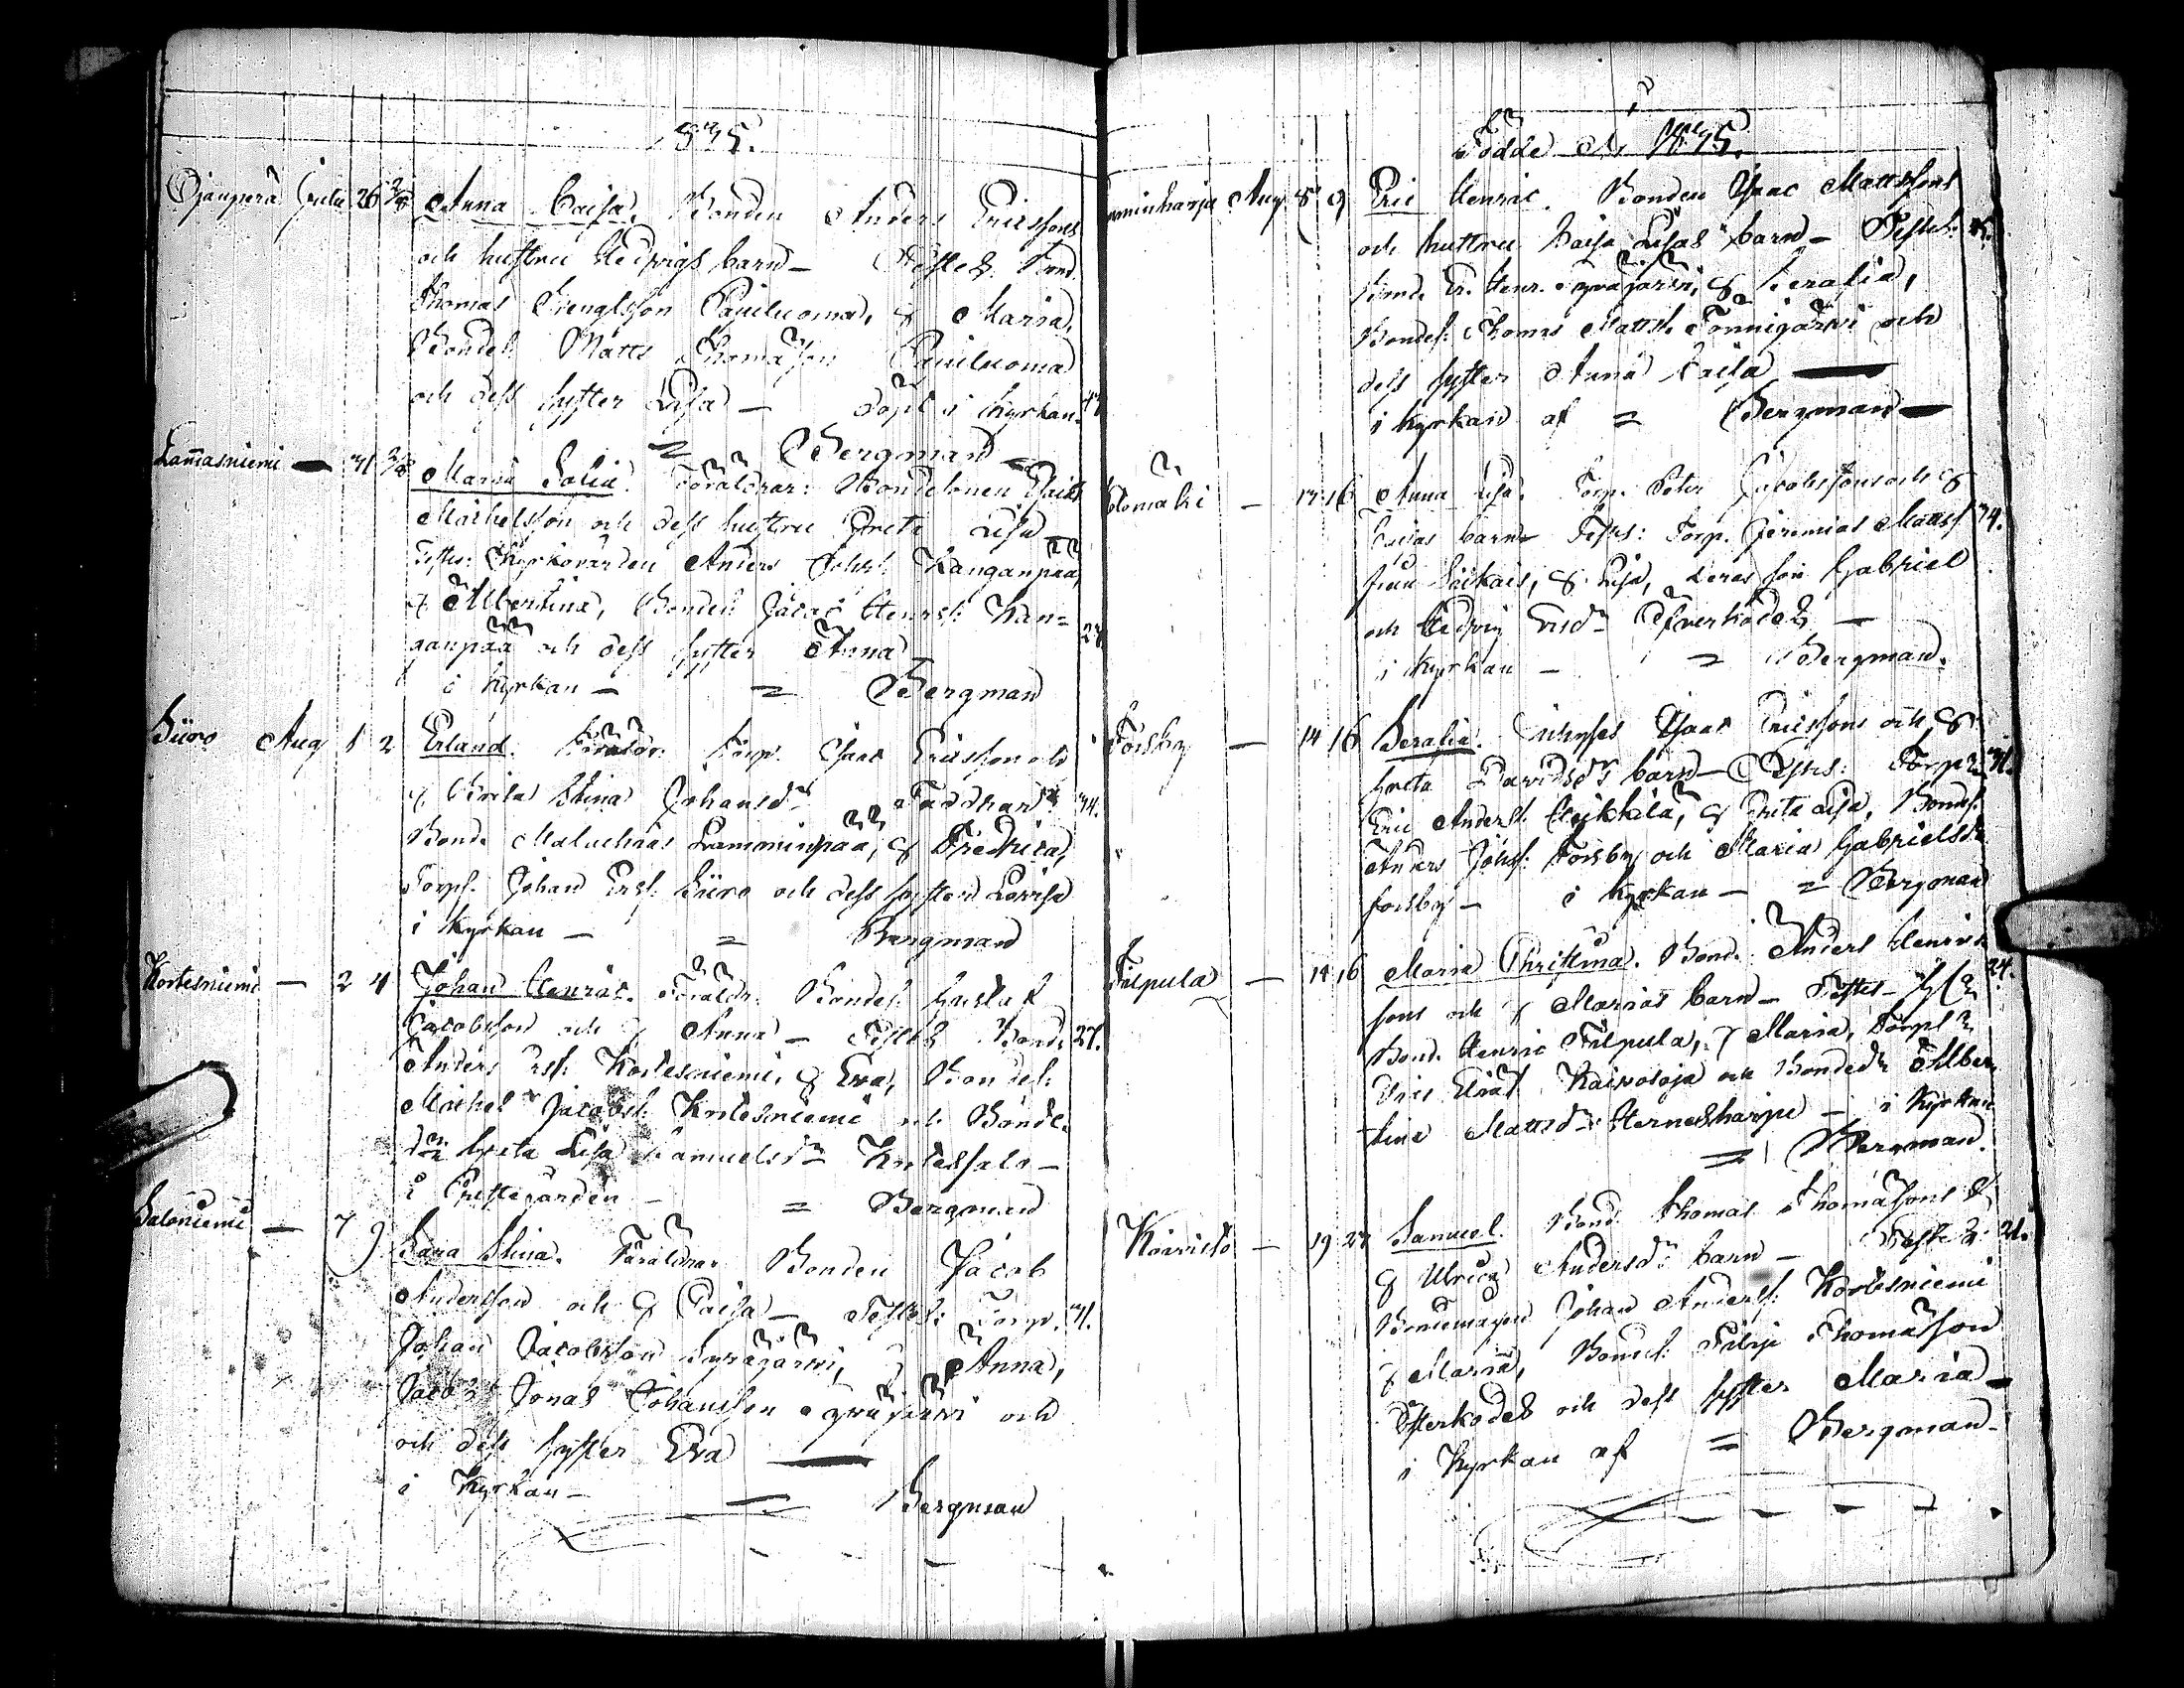 1845.
Ojanperä Julii 26 2/8 Anna Caisa. Bonden Anders Ericssons
och hustru Hedvigs barn — Test. Bond.
Thomas Bengtsson Pauiluoma, & Maria,
Bondes. Matts Thomasson Pauiluoma
och dess syster Lisa — Döpt i kyrkan
= Bergman
Lammasniemi — 31 2/8 Maria Sofia. Föräldrar: Bondesonen Isaac
Michelsson och dess hustru Greta Lisa
Testes: Kyrkovärden Anders Johss. Kanganpää,
& Albertina, Bondes. Jacob Henrss. Kan=
ganpää och dess syster Anna — 27
i Kyrkan — = Bergman
Süro Aug 1 2 Erland. Föräldr. Torp. Isaac Ericsson och
& Brita Stina Johansdr 34.
Bond. Malachias Lamminpää, & Fredrica,
Torps. Johan Erss. Süro och dess syster Lovisa
i Kyrkan — = Bergman
Kortesniemi — 2 4 Johan Henric. Föräldr. Bondes. Gustaf
Jacobsson och & Anna — Testes Bond. 27.
Anders Erss. Kortesniemi, & Eva, Bondes.
Michel Jacobss. Kortesniemi och Bonde
dr Greta Lisa Samuelsdr Kortessalo —
i Prestegården — = Bergman
Saloniemi — 7 9 Sara Stina. Föräldrar Bonden Jacob
Andersson och & Caisa — Testes: Torp. 31.
Johan Jacobsson Syväjärvi, & Anna,
Jonas Johansson Syväjärvi och
och dess syster Eva —
i Kyrkan — = Bergman
Födde År 1845.
Aug 8 9 Eric Henric. Bonden Isaac Mattssons
och hustru Caisa Lisas barn — Testes:
Bond. Er. Henr. Syväjärvi, & Serafia,
Bondes. Thoms Mattss. Tönnigärvi och
dess syster Anna Caisa —
i Kyrkan af = Bergman —
— 13 16 Anna Lisa. Torp. Petter Jacobssons och &
Caisas barn — Testes: Torp. Jeremias Mattss. 34.
& Lisa, deras son Gabriel
och Hedvig Ersdr Öfverkodes —
i Kyrkan — = Bergman.
Forsby — 14 16 Serafia. Isaac Ericssons och &
Greta Davidsdrs barn — Testes: Torp. 31.
Eric Anderss. Heikkilä, & Greta Lisa, Bondes.
Anders Johss. Forsby och Maria Gabrielsdr
Forsby — i Kyrkan — = Bergman
Filpula — 14 16 Maria Christina. Bond. Anders Henrics
sons och & Marias barn — Testes — 24.
Bond. Henric Filpula, & Maria, Torps.
Eric Kaivosoja och Bondedr Alber
tina Mattsdr Herneskarju — i Kyrkan
= Bergman.
Koivisto — 19 27 Samuel. Bond. Thomas Thomassons &
& Ulrica Andersdrs barn — Test. 21.
Bondemågen Johan Anderss. Kortesniemi
& Maria, Bondes. Filip Thomasson
Ytterkodes och dess syster Maria —
i Kyrkan af = Bergman —